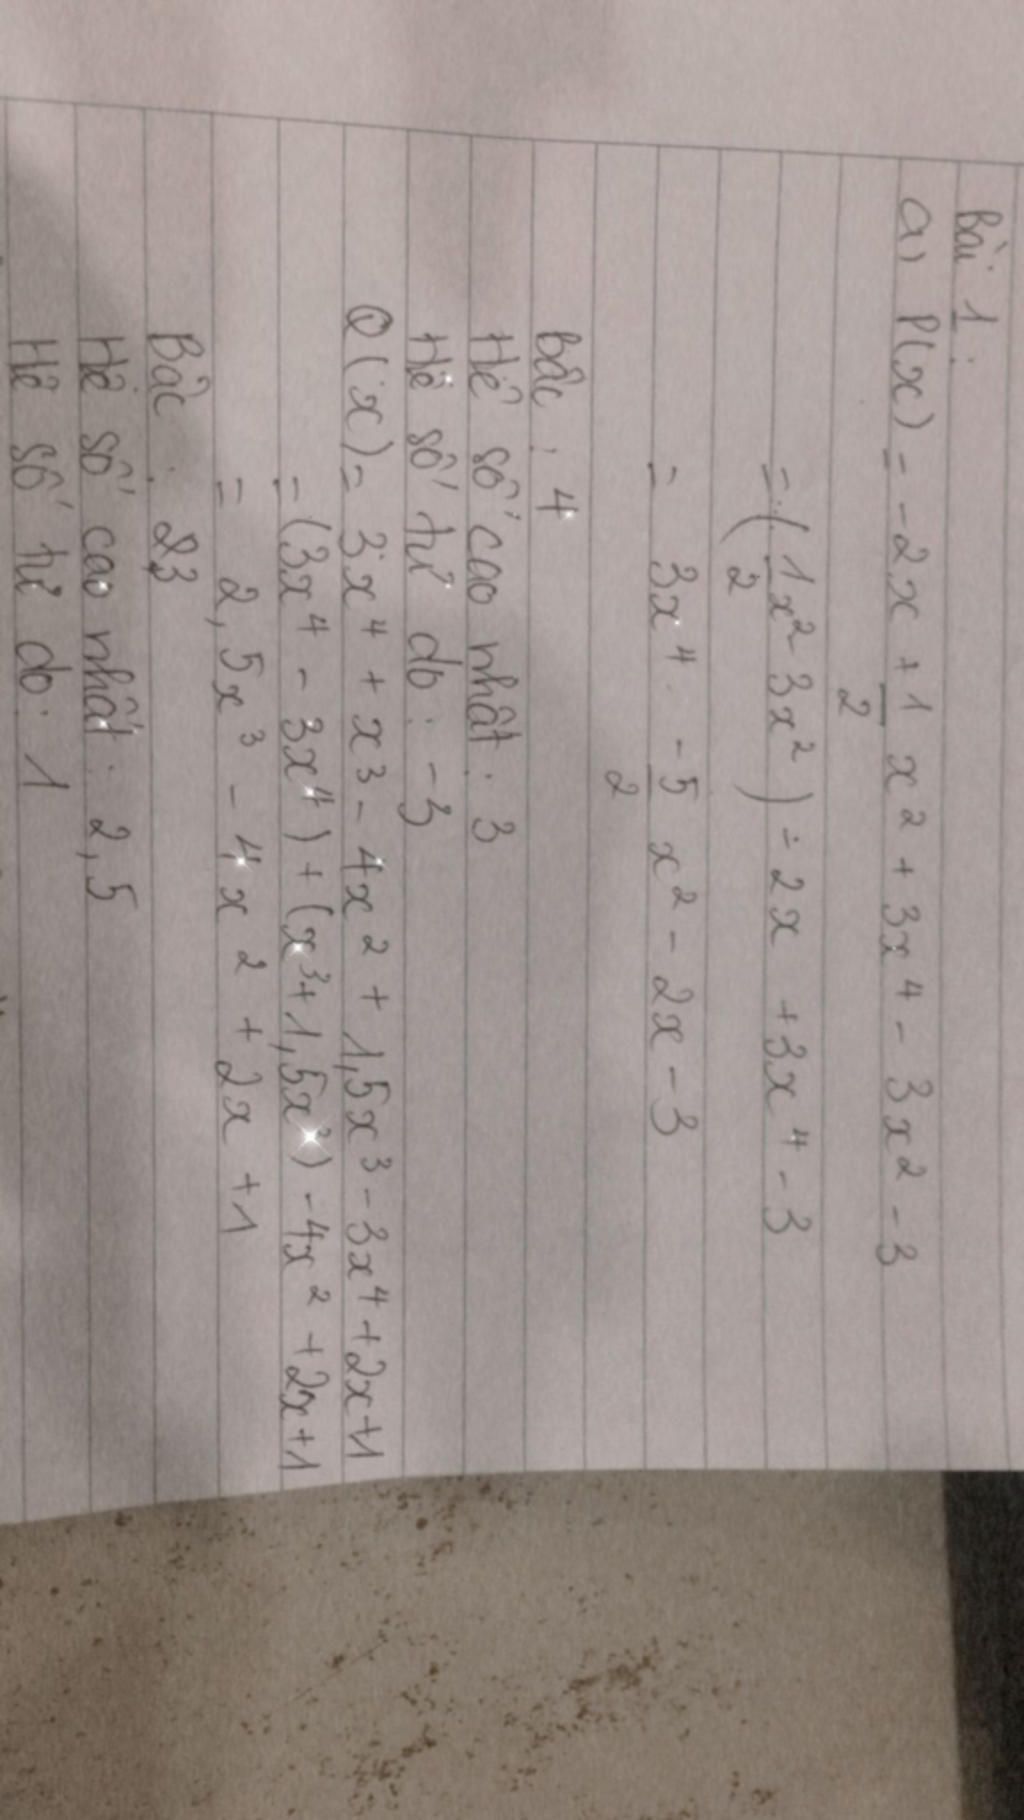 Bài 1:
a) P(x) = -2x + 1/2 x² + 3x⁴ - 3x² - 3
= (1/2 x² 3x²) - 2x + 3x⁴ - 3
= 3x⁴ - 5/2 x² - 2x - 3
Bậc : 4
Hệ số cao nhất : 3
Hệ số tự do : -3
Q(x) = 3x⁴ + x³ - 4x² + 1,5x³ - 3x⁴ + 2x + 1
= (3x⁴ - 3x⁴) + (x³ + 1,5x³) - 4x² + 2x + 1
= 2,5x³ - 4x² + 2x + 1
Bậc : 3
Hệ số cao nhất : 2,5
Hệ số tự do : 1